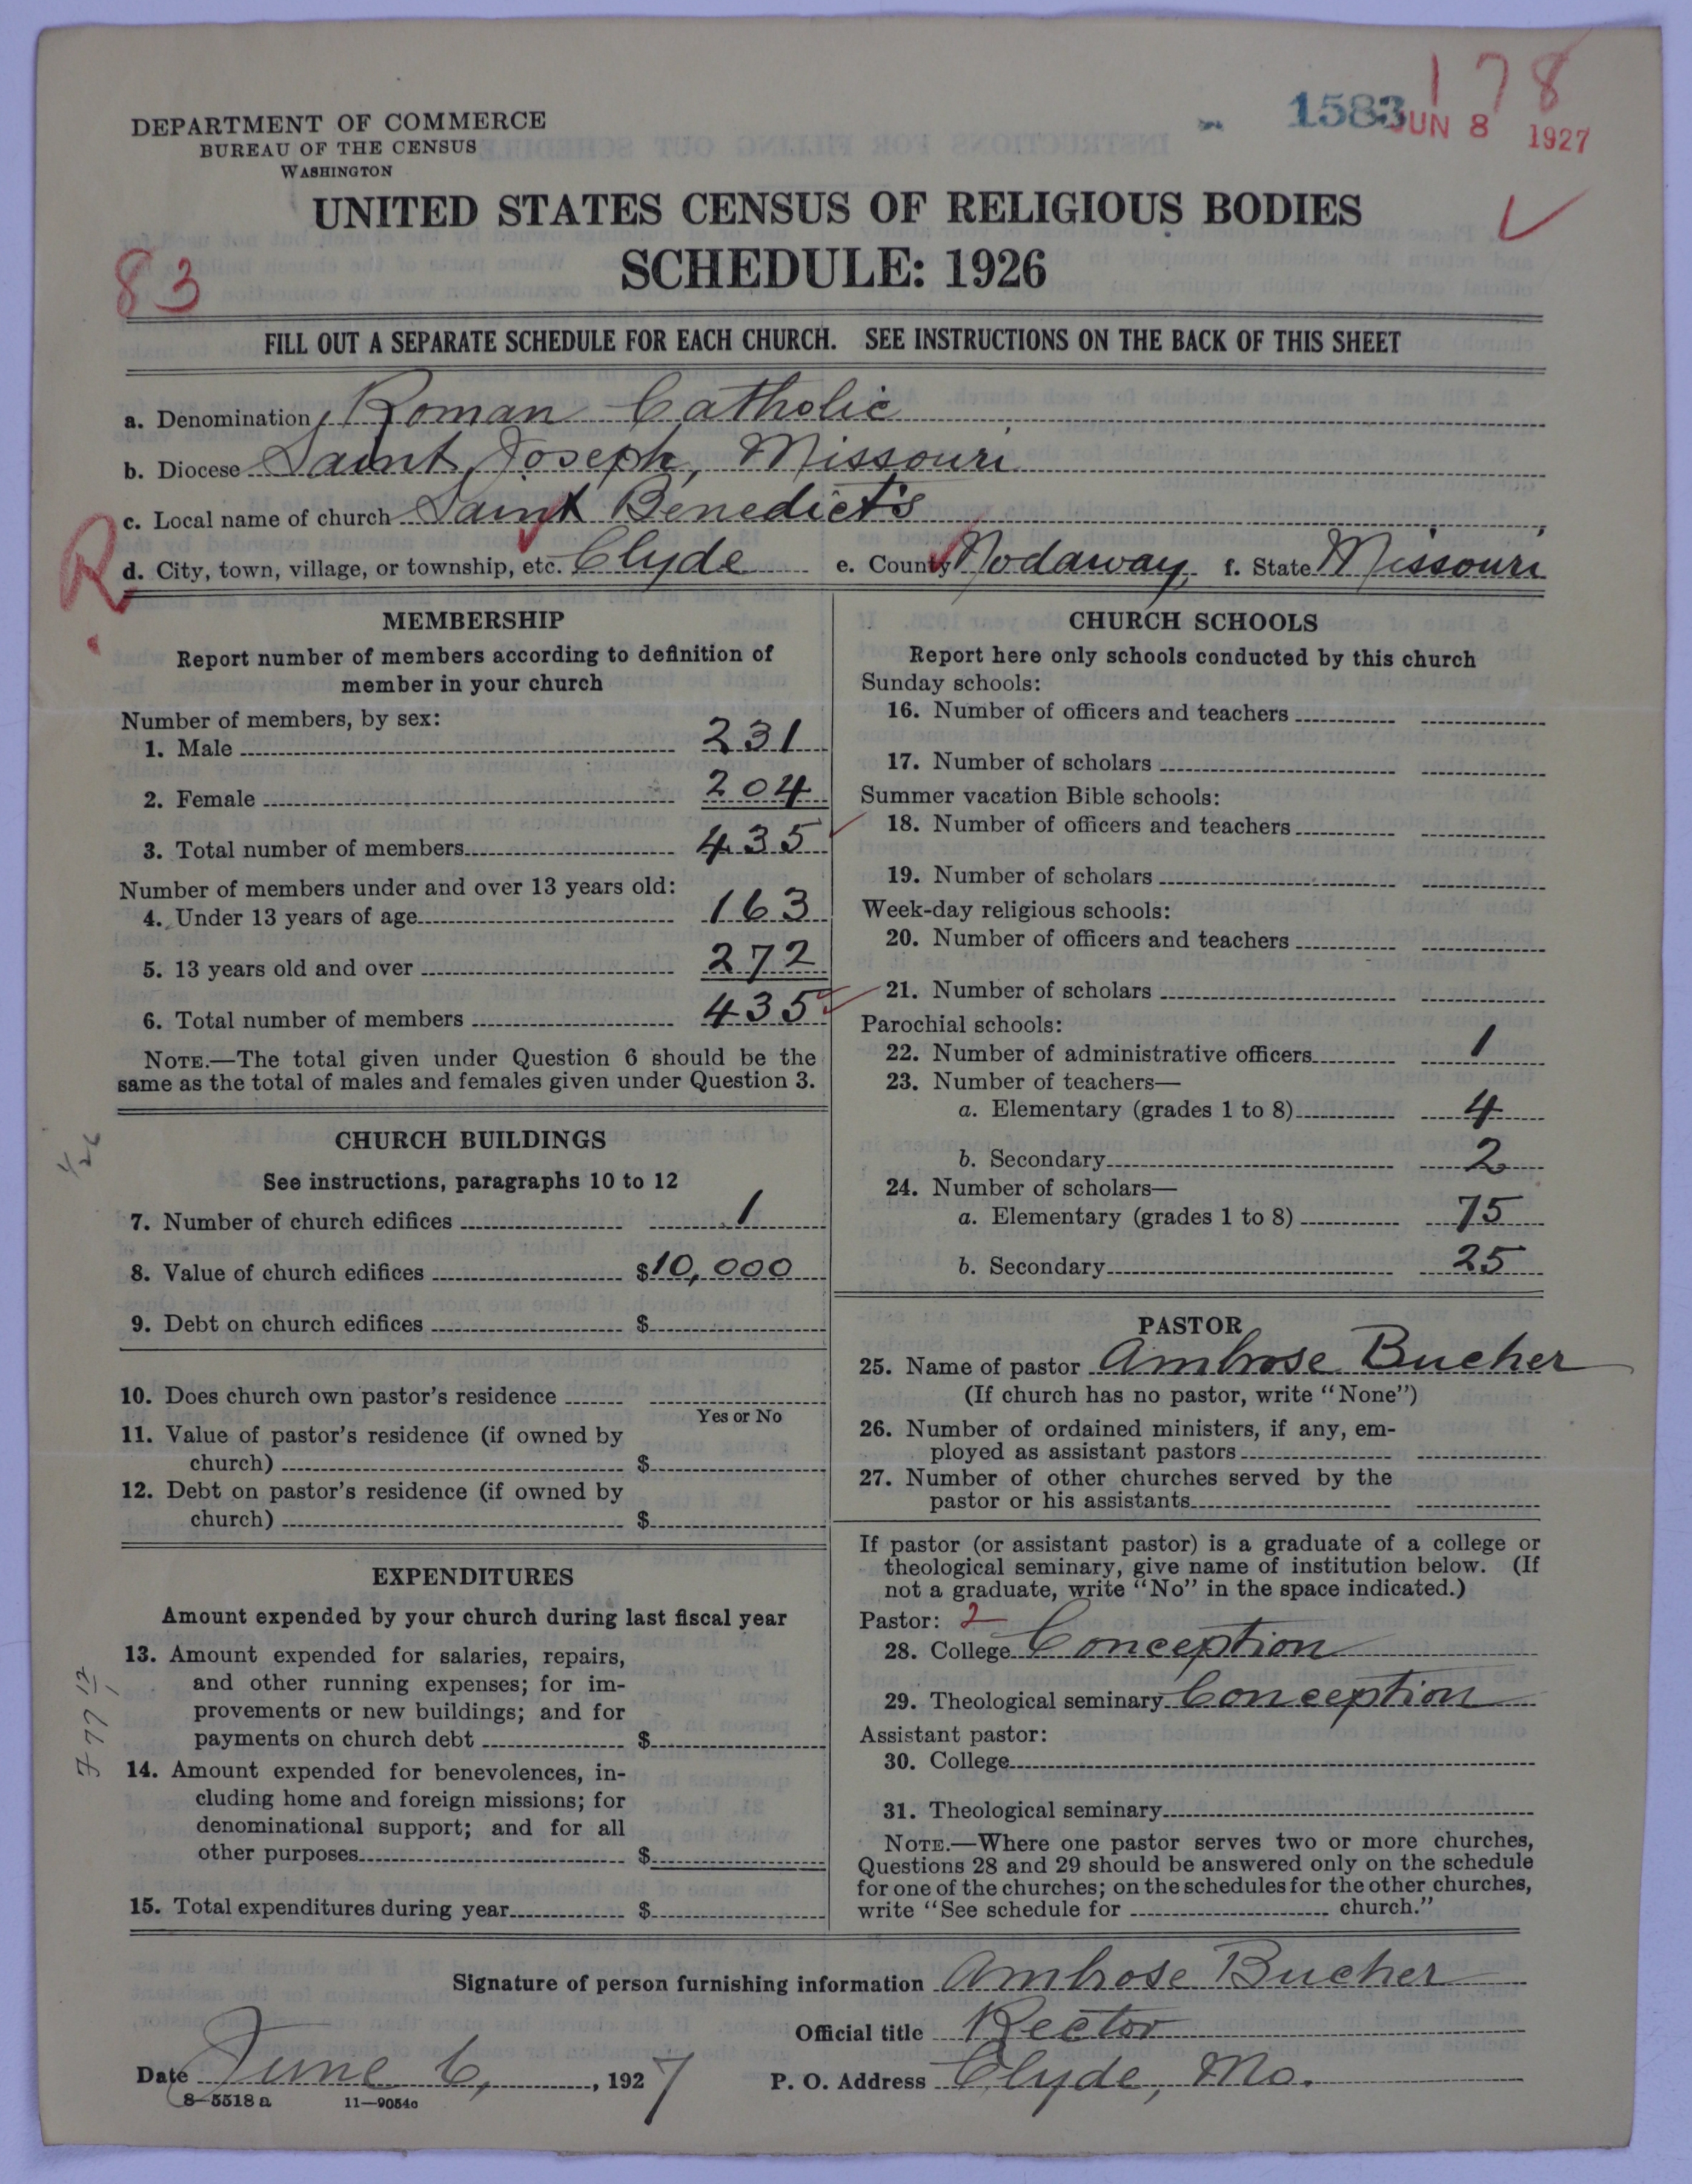 178
1583
JUN 8 1927
DEPARTMENT OF COMMERCE
BUREAU OF THE CENSUS
WASHINGTON
UNITED STATES CENSUS OF RELIGIOUS BODIES
SCHEDULE: 1926
83
FILL OUT A SEPARATE SCHEDULE FOR EACH CHURCH. SEE INSTRUCTIONS ON THE BACK OF THIS SHEET
a. Denomination Roman Catholic
b. Diocese Saint Joseph, Missouri
c. Local name of church Saint Benedict's
R
d. City, town, village, or township, etc. Clyde e. County Nodaway, f. State Missouri
MEMBERSHIP
Report number of members according to definition of
member in your church
Number of members, by sex:
1. Male 231
2. Female 204
3. Total number of members 435
Number of members under and over 13 years old:
4. Under 13 years of age 163
5. 13 years old and over 272
6. Total number of members 435
NOTE.—The total given under Question 6 should be the
same as the total of males and females given under Question 3.
CHURCH BUILDINGS
See instructions, paragraphs 10 to 12
7. Number of church edifices 1
8. Value of church edifices $10,000
9. Debt on church edifices $
10. Does church own pastor's residence
Yes or No
11. Value of pastor's residence (if owned by
church) $
12. Debt on pastor's residence (if owned by
church) $
EXPENDITURES
Amount expended by your church during last fiscal year
13. Amount expended for salaries, repairs,
and other running expenses; for im-
provements or new buildings; and for
payments on church debt $
14. Amount expended for benevolences, in-
cluding home and foreign missions; for
denominational support; and for all
other purposes $
15. Total expenditures during year $
CHURCH SCHOOLS
Report here only schools conducted by this church
Sunday schools:
16. Number of officers and teachers
17. Number of scholars
Summer vacation Bible schools:
18. Number of officers and teachers
19. Number of scholars
Week-day religious schools:
20. Number of officers and teachers
21. Number of scholars
Parochial schools:
22. Number of administrative officers 1
23. Number of teachers—
a. Elementary (grades 1 to 8) 4
b. Secondary 2
24. Number of scholars—
a. Elementary (grades 1 to 8) 75
b. Secondary 25
PASTOR
25. Name of pastor Ambrose Bucher
(If church has no pastor, write "None")
26. Number of ordained ministers, if any, em-
ployed as assistant pastors
27. Number of other churches served by the
pastor or his assistants
If pastor (or assistant pastor) is a graduate of a college or
theological seminary, give name of institution below. (If
not a graduate, write "No" in the space indicated.)
Pastor: 2
28. College Conception
29. Theological seminary Conception
Assistant pastor:
30. College
31. Theological seminary
NOTE.—Where one pastor serves two or more churches,
Questions 28 and 29 should be answered only on the schedule
for one of the churches; on the schedules for the other churches,
write "See schedule for church."
Signature of person furnishing information Ambrose Bucher
Official title Rector
Date June 6, 1927 P. O. Address Clyde, Mo.
8-5518 a 11-9054c